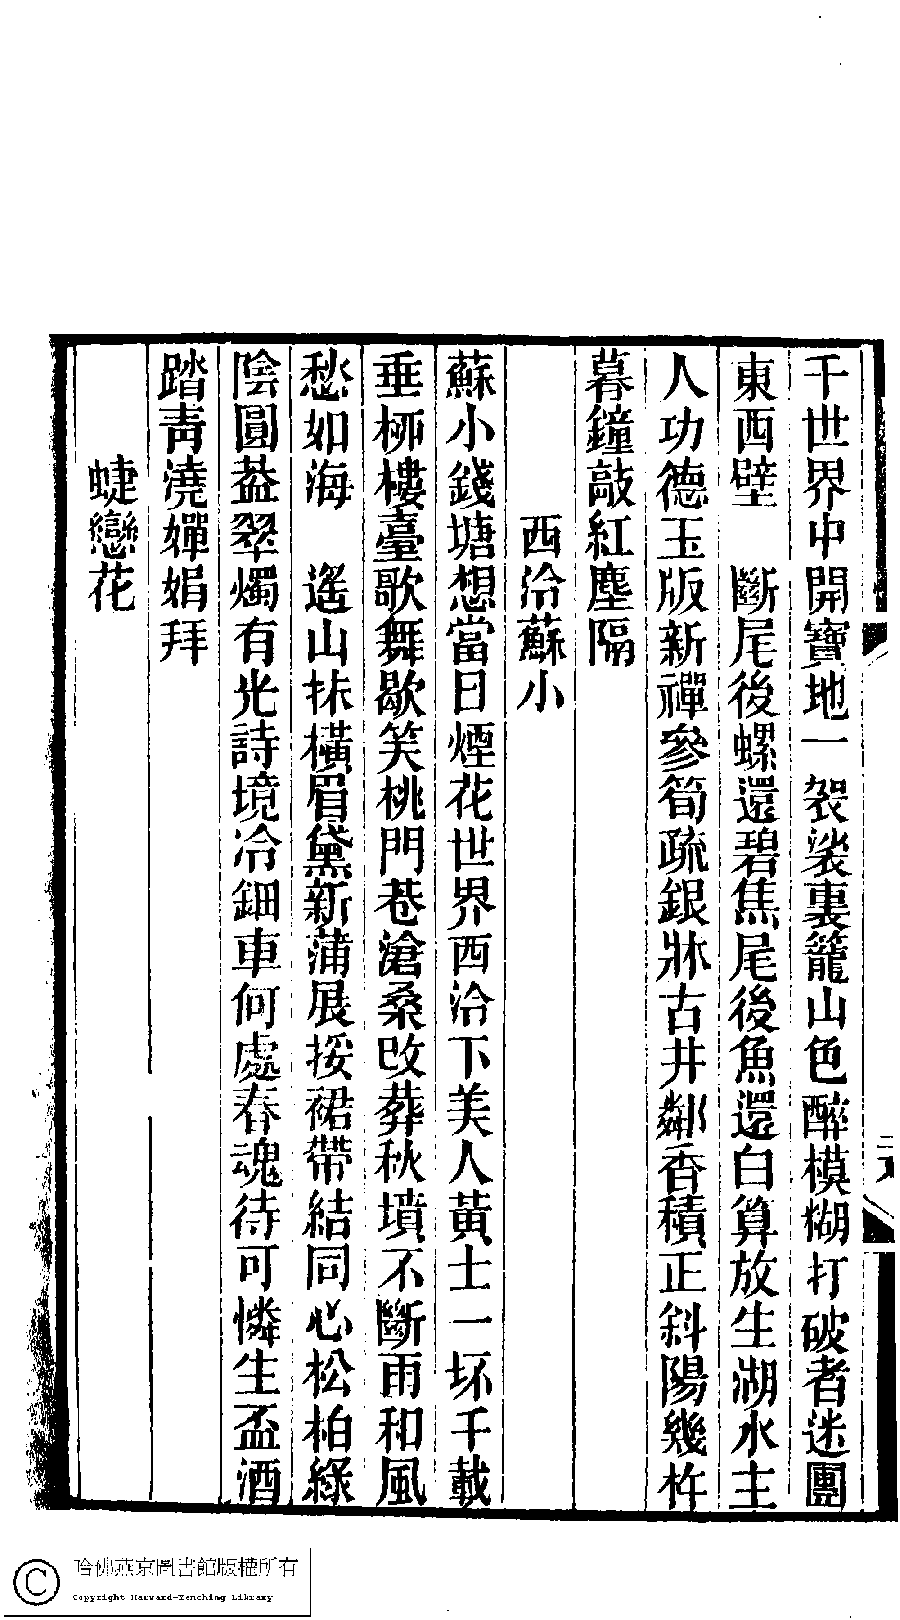 千世界中開寶地一袈裟裏籠山色醉模糊打破者迷團
東西壁　斷尾後螺還碧焦尾後魚還白算放生湖水主
人功德玉版新禪參筍疏銀牀古井鄰香積正斜陽幾杵
暮鐘敲紅塵隔
西泠蘇小
蘇小錢塘想當日煙花世界西泠下美人黃土一坏千載
垂桺樓臺歌舞歇笑桃門巷滄桑改葬秋墳不斷雨和風
愁如海　遙山抹橫眉黛新蒲展挼裙帶結同心松柏綠
陰圓葢翠燭有光詩境冷鈿車何處春魂待可憐生盃酒
踏靑澆嬋娟拜
蜨戀花
哈佛燕京圖書館版權所有
Copyright Harvard-Yenching Library